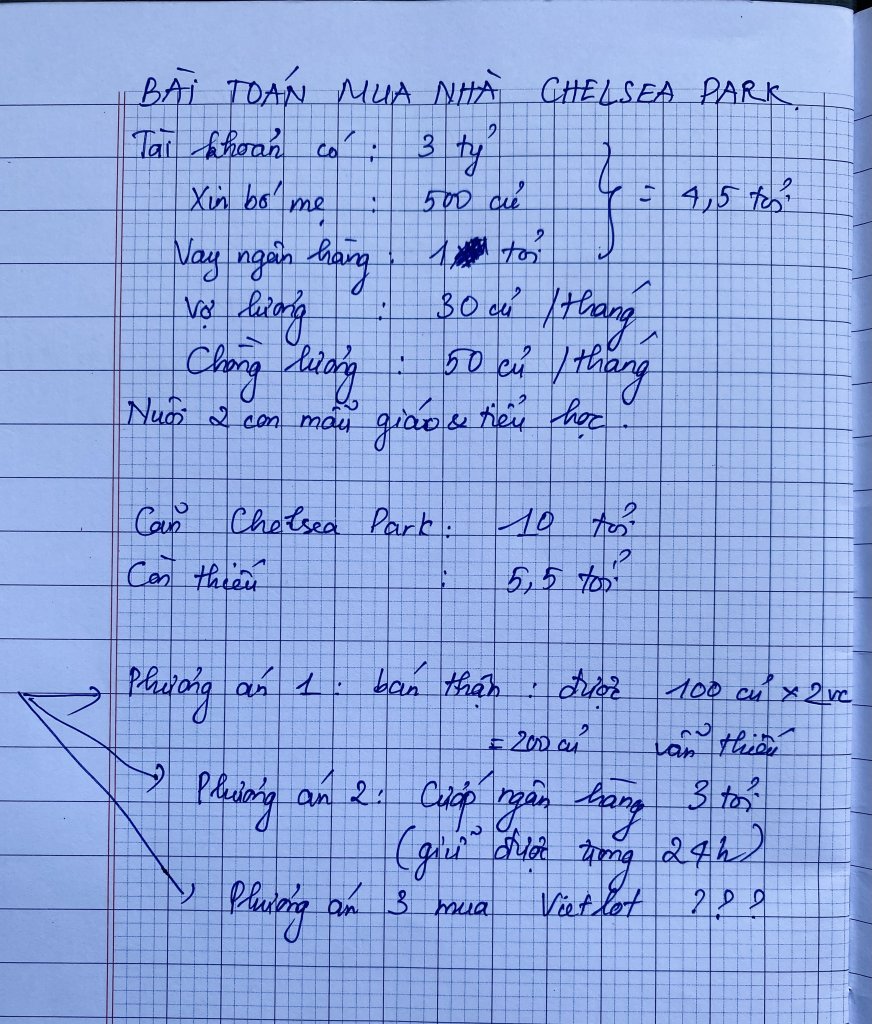 BÀI TOÁN MUA NHÀ CHELSEA PARK.
Tài khoản có : 3 tỷ
Xin bố mẹ : 500 củ } = 4,5 tỏi
Vay ngân hàng : 1 tỏi
Vợ lương : 30 củ / tháng
Chồng lương : 50 củ / tháng
Nuôi 2 con mẫu giáo & tiểu học.
Căn Chelsea Park : 10 tỏi
Còn thiếu : 5,5 tỏi
Phương án 1 : bán thận : được 100 củ × 2 vc
= 200 củ vẫn thiếu
Phương án 2 : Cướp ngân hàng 3 tỏi
(giữ được trong 24h)
Phương án 3 mua Vietlot ???